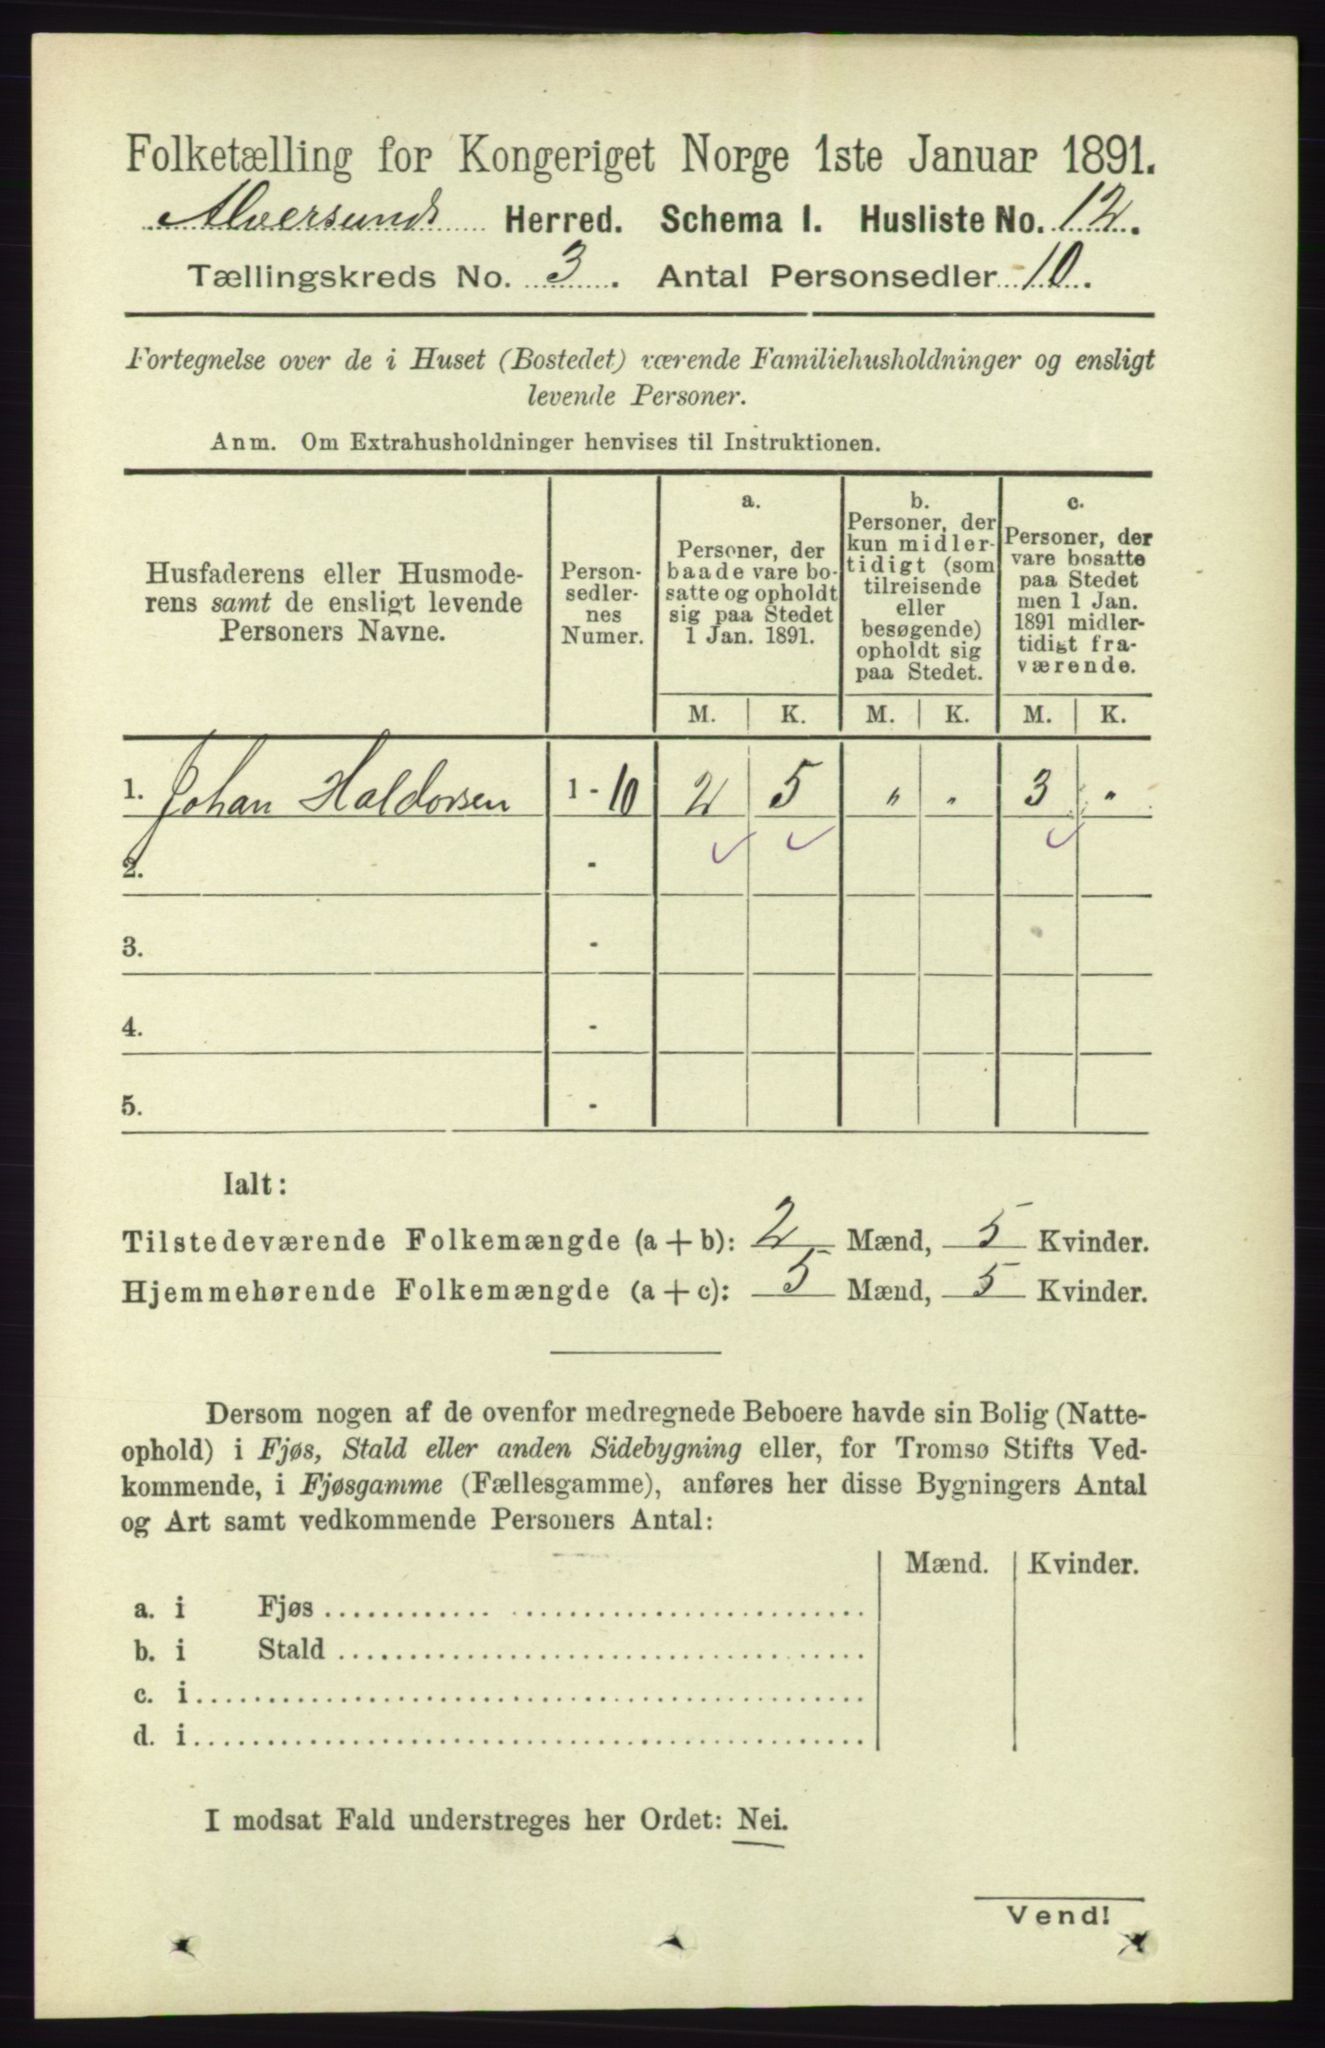 Folketælling for Kongeriget Norge 1ste Januar 1891.
Alversunds Herred. Schema I. Husliste No. 12.
Tællingskreds No. 3. Antal Personsedler 10.
Fortegnelse over de i Huset (Bostedet) værende Familiehusholdninger og ensligt
levende Personer.
Anm. Om Extrahusholdninger henvises til Instruktionen.
Husfaderens eller Husmode-
rens samt de ensligt levende
Personers Navne.
Person-
sedler-
nes
Numer.
a.
Personer, der
baade vare bo-
satte og opholdt
sig paa Stedet
1 Jan. 1891.
b.
Personer, der
kun midler-
tidigt (som
tilreisende
eller
besøgende)
opholdt sig
paa Stedet.
c.
Personer, der
vare bosatte
paa Stedet
men 1 Jan.
1891 midler-
tidigt fra-
værende.
M. K. M. K. M. K.
1. Johan Haldorsen 1 - 10 2 5 " " 3 "
2. -
3. -
4. -
5. -
Ialt:
Tilstedeværende Folkemængde (a + b): 2 Mænd, 5 Kvinder.
Hjemmehørende Folkemængde (a + c): 5 Mænd, 5 Kvinder.
Dersom nogen af de ovenfor medregnede Beboere havde sin Bolig (Natte-
ophold) i Fjøs, Stald eller anden Sidebygning eller, for Tromsø Stifts Ved-
kommende, i Fjøsgamme (Fællesgamme), anføres her disse Bygningers Antal
og Art samt vedkommende Personers Antal:
Mænd. Kvinder.
a. i Fjøs
b. i Stald
c. i
d. i
I modsat Fald understreges her Ordet: Nei.
Vend!